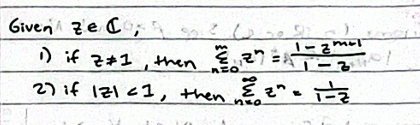 Given z ∈ ℂ,
1) if z ≠ 1, then $\sum_{n=0}^{m} z^n = \frac{1 - z^{m+1}}{1 - z}$
2) if |z| < 1, then $\sum_{n=0}^{\infty} z^n = \frac{1}{1-z}$